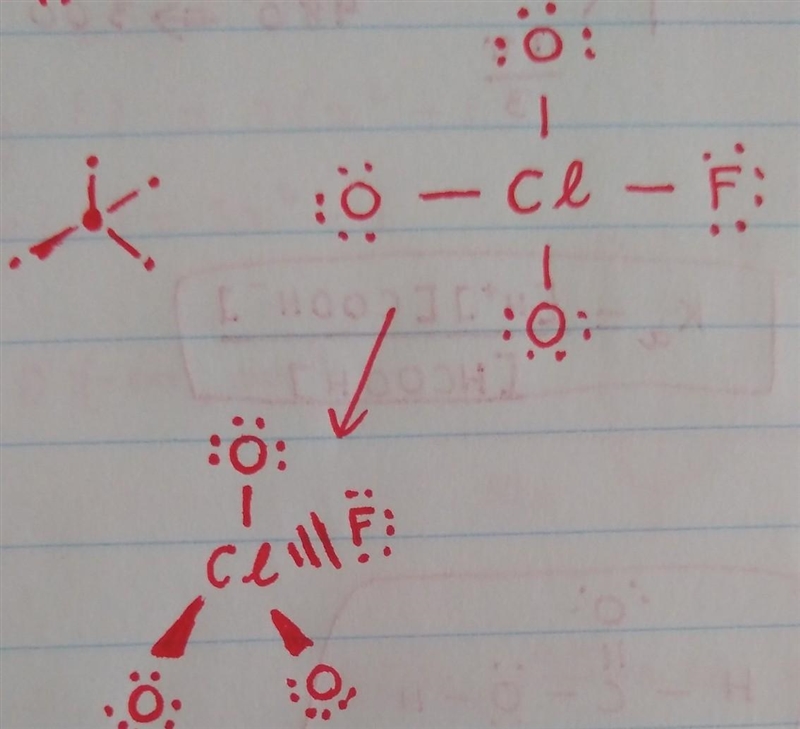 :Ö:
:Ö — Cl — F̈:
:O:
:Ö:
Cl F̈:
:O: :O: